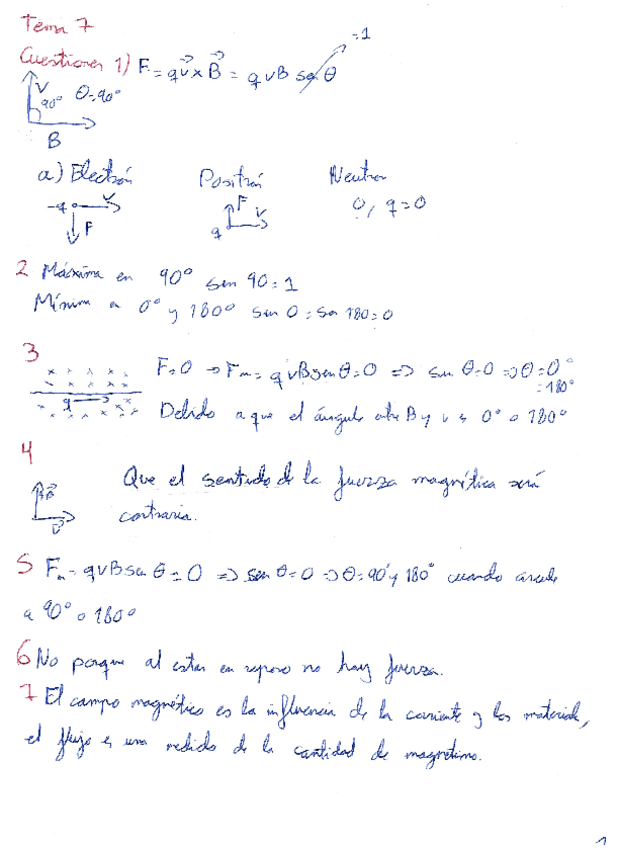 Tema 7
Cuestiones 1) F = qv⃗ x B⃗ = q v B sen θ =1
V 90° θ=90°
B
a) Electrón Positrón Neutrón
-q V F q F V 0, q=0
2 Máxima en 90° sen 90=1
Mínima a 0° y 180° sen 0 = sen 180=0
3
x x x x x
q F=0 → Fm = q v B sen θ=0 => sen θ=0 => θ=0°
=180°
Debido a que el ángulo entre B y v es 0° o 180°
4
B⃗ v⃗ Que el sentido de la fuerza magnética será
contraria.
5 Fm = q v B sen θ = 0 => sen θ=0 => θ=90° y 180° cuando circule
a 90° o 180°
6 No porque al estar en reposo no hay fuerza.
7 El campo magnético es la influencia de la corriente y los material,
el flujo es una medida de la cantidad de magnetismo.
1